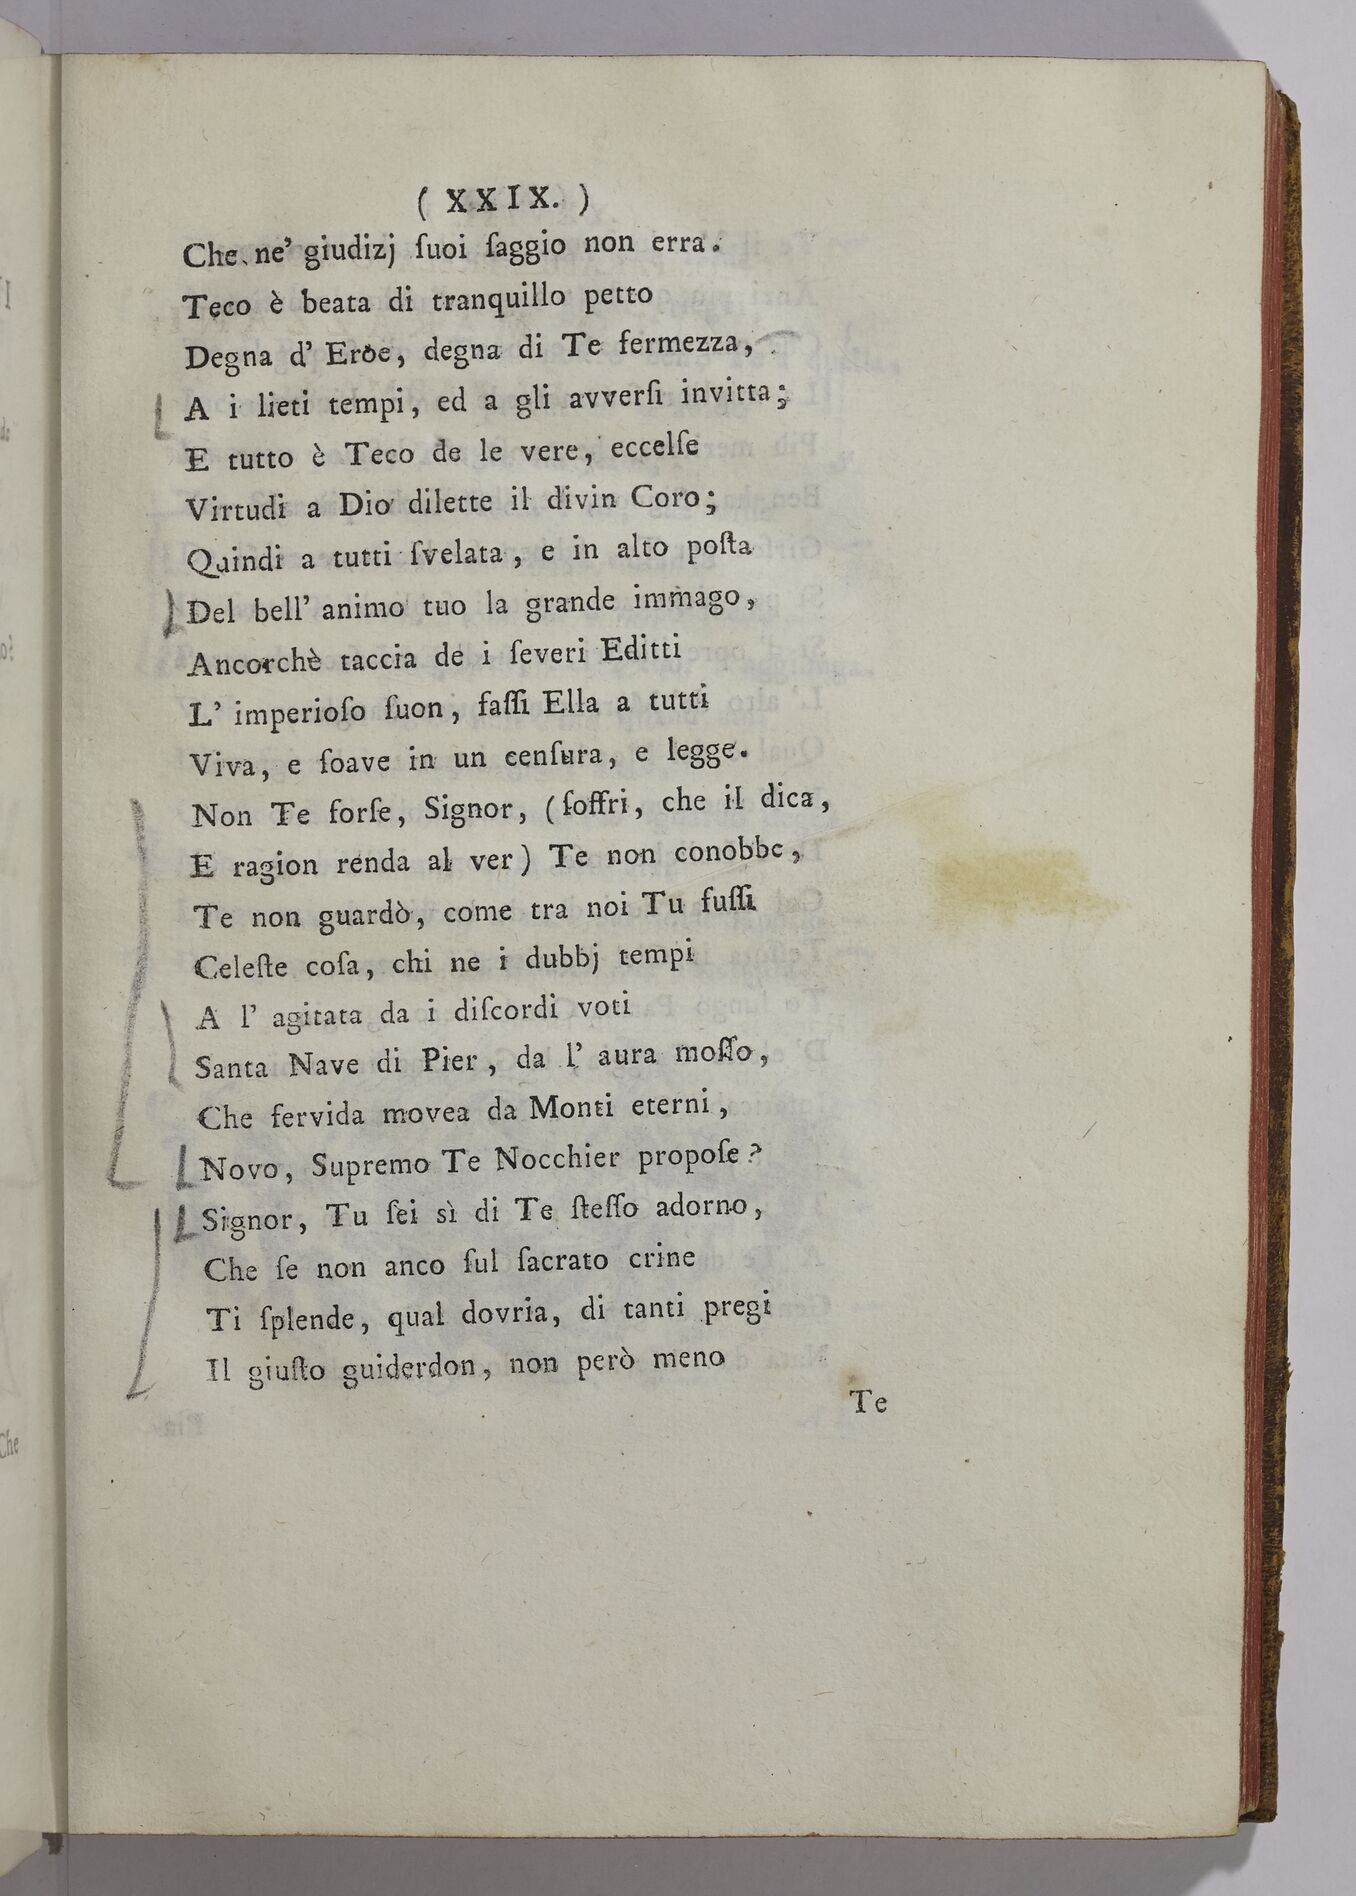 ( XXIX. )
Che ne' giudizj ſuoi ſaggio non erra.
Teco è beata di tranquillo petto
Degna d' Eròe, degna di Te fermezza,
A i lieti tempi, ed a gli avverſi invitta;
E tutto è Teco de le vere, eccelſe
Virtudi a Dio dilette il divin Coro;
Quindi a tutti ſvelata, e in alto poſta
Del bell' animo tuo la grande immago,
Ancorchè taccia de i ſeveri Editti
L' imperioſo ſuon, faſſi Ella a tutti
Viva, e ſoave in un cenſura, e legge.
Non Te forſe, Signor, (ſoffri, che il dica,
E ragion renda al ver) Te non conobbe,
Te non guardò, come tra noi Tu fuſſi
Celeſte coſa, chi ne i dubbj tempi
A l' agitata da i diſcordi voti
Santa Nave di Pier, da l' aura moſſo,
Che fervida movea da Monti eterni,
Novo, Supremo Te Nocchier propoſe?
Signor, Tu ſei sì di Te ſteſſo adorno,
Che ſe non anco ſul ſacrato crine
Ti ſplende, qual dovria, di tanti pregi
Il giuſto guiderdon, non però meno
Te
Che